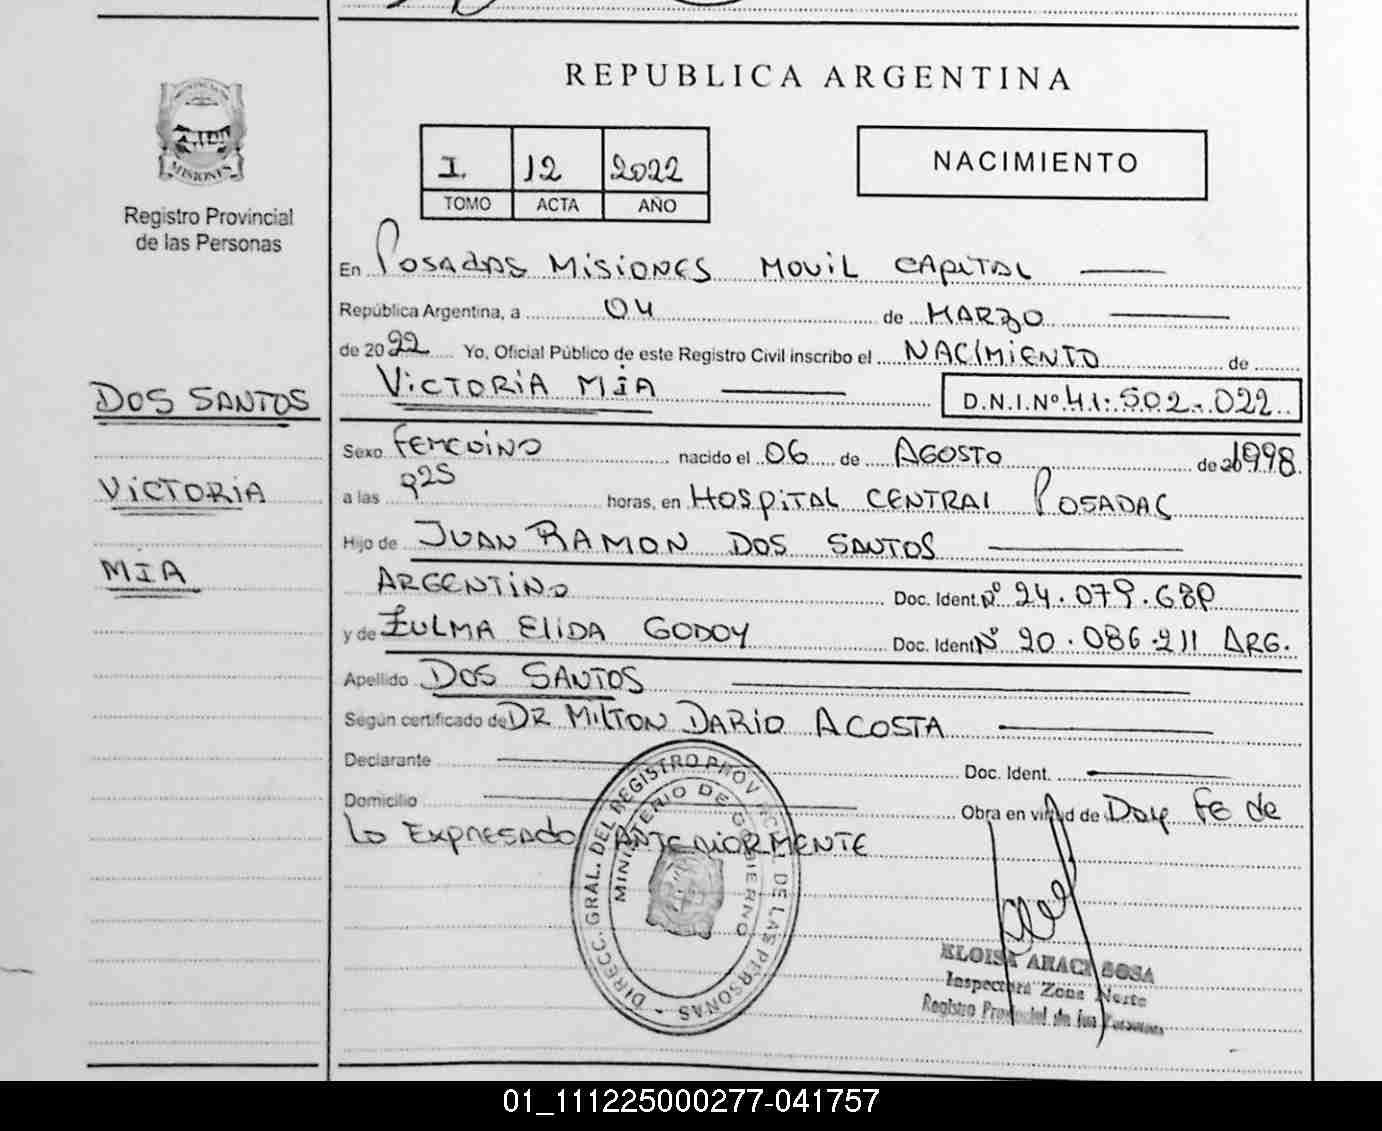 REPUBLICA ARGENTINA
MISIONES
Registro Provincial
de las Personas
I. 12 2022
TOMO ACTA AÑO
NACIMIENTO
En Posadas Misiones Movil Capital
República Argentina, a 04 de Marzo
de 2022 Yo, Oficial Público de este Registro Civil inscribo el Nacimiento de
Victoria Mia D.N.I.Nº 41.502.022
Dos Santos
Victoria
Mia
Sexo Femenino nacido el 06 de Agosto de 1998
a las 925 horas, en Hospital Central Posadas
Hijo de Juan Ramon Dos Santos
Argentino Doc. Ident. Nº 24.079.
y de Zulma Elida Godoy Doc. Ident Nº 20.086.211 Arg.
Apellido Dos Santos
Según certificado de Dr Milton Dario Acosta
Declarante Doc. Ident.
Domicilio Obra en virtud de Doy fe de
lo Expresado Anteriormente
DIRECC. GRAL. DEL REGISTRO PROVINCIAL DE LAS PERSONAS
MINISTERIO DE GOBIERNO
ELOISA ARACI SOSA
Inspectora Zona Norte
Registro Provincial de las Personas
01_111225000277-041757